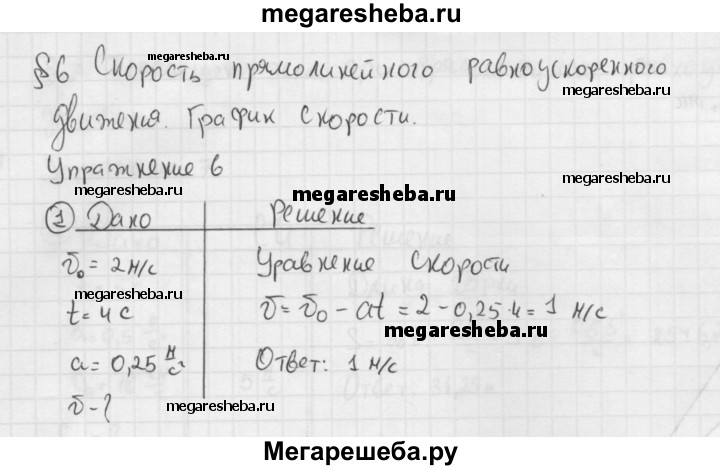 megaresheba.ru
§6 Скорость прямолинейного равноускоренного
megaresheba.ru
megaresheba.ru
движения. График скорости.
Упражнение 6
megaresheba.ru
megaresheba.ru
megaresheba.ru
1 Дано Решение
v₀ = 2 м/с Уравнение скорости
megaresheba.ru
t = 4 с v = v₀ - at = 2 - 0,25·4 = 1 м/с
megaresheba.ru
a = 0,25 м/с² Ответ: 1 м/с
v - ?
megaresheba.ru
megaresheba.ru
Мегарешеба.ру